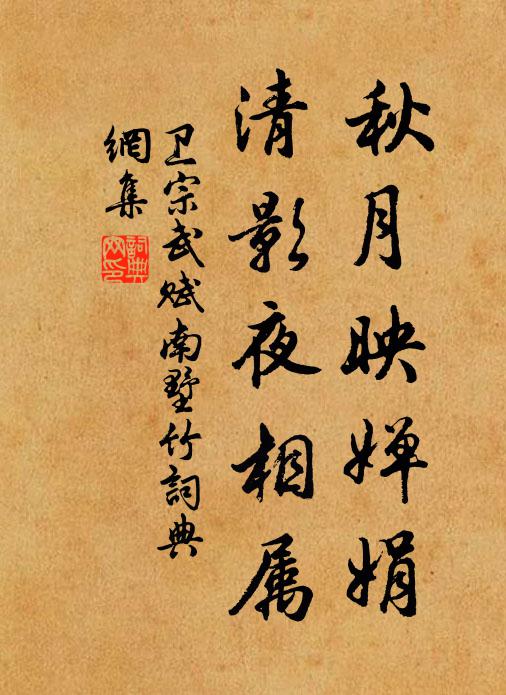 秋月映婵娟
清影夜相属
卫宗武赋南墅竹詞典
網集
詞典
网印